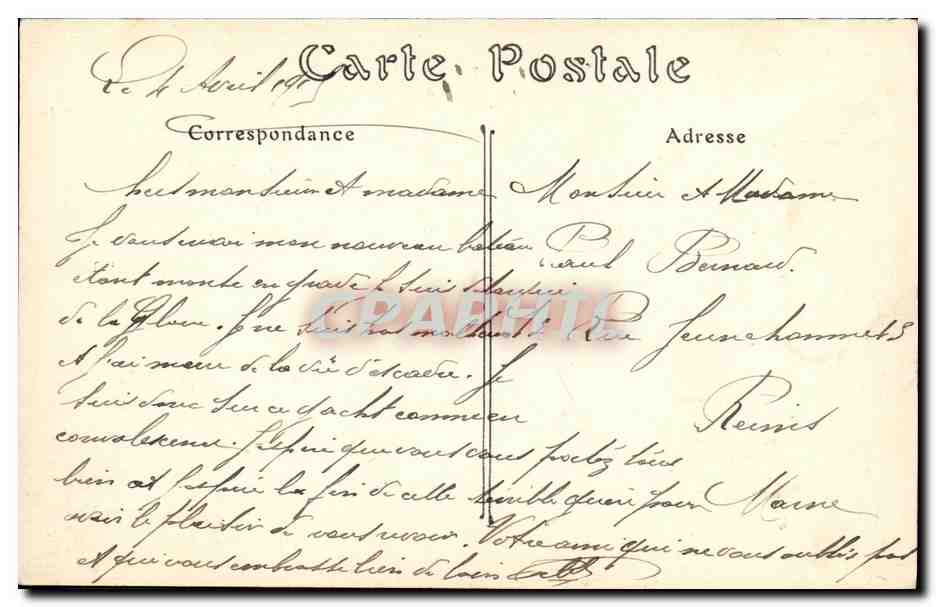 Carte Postale
Le 4 Avril 1915
Correspondance
Adresse
monsieur et madame
Je vous envoi mon nouveau bateau
étant monté en grade je suis
de la Je ne suis pas
et j'ai de la vie d'escadre. Je
suis donc sur ce yacht comme en
convalescence. J'espère que vous vous portez tous
bien et j'espère la fin de cette terrible guerre pour
avoir le plaisir de vous revoir. Votre ami qui ne vous oublis pas
et qui vous embrasse bien de loin
Monsieur et Madame
Paul Bernard.
Rue Jeunehomme
Reims
Marne
CPAPHIL